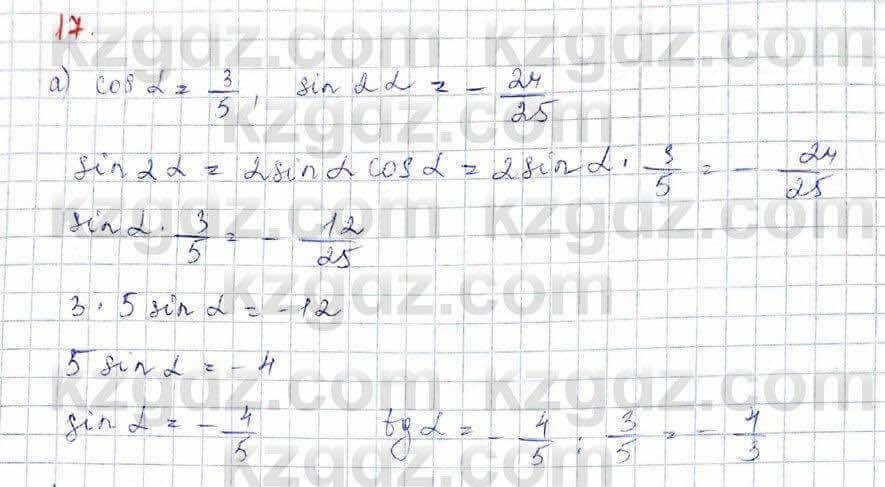 17.
а) cos α = 3/5, sin 2α = - 24/25
sin 2α = 2 sin α cos α = 2 sin α · 3/5 = - 24/25
sin α · 3/5 = - 12/25
3 · 5 sin α = -12
5 sin α = -4
sin α = - 4/5 tg α = - 4/5 : 3/5 = - 4/3
kzgdz.com kzgdz.com
kzgdz.com
kzgdz.com kzgdz.com
kzgdz.com
kzgdz.com kzgdz.com
kzgdz.com